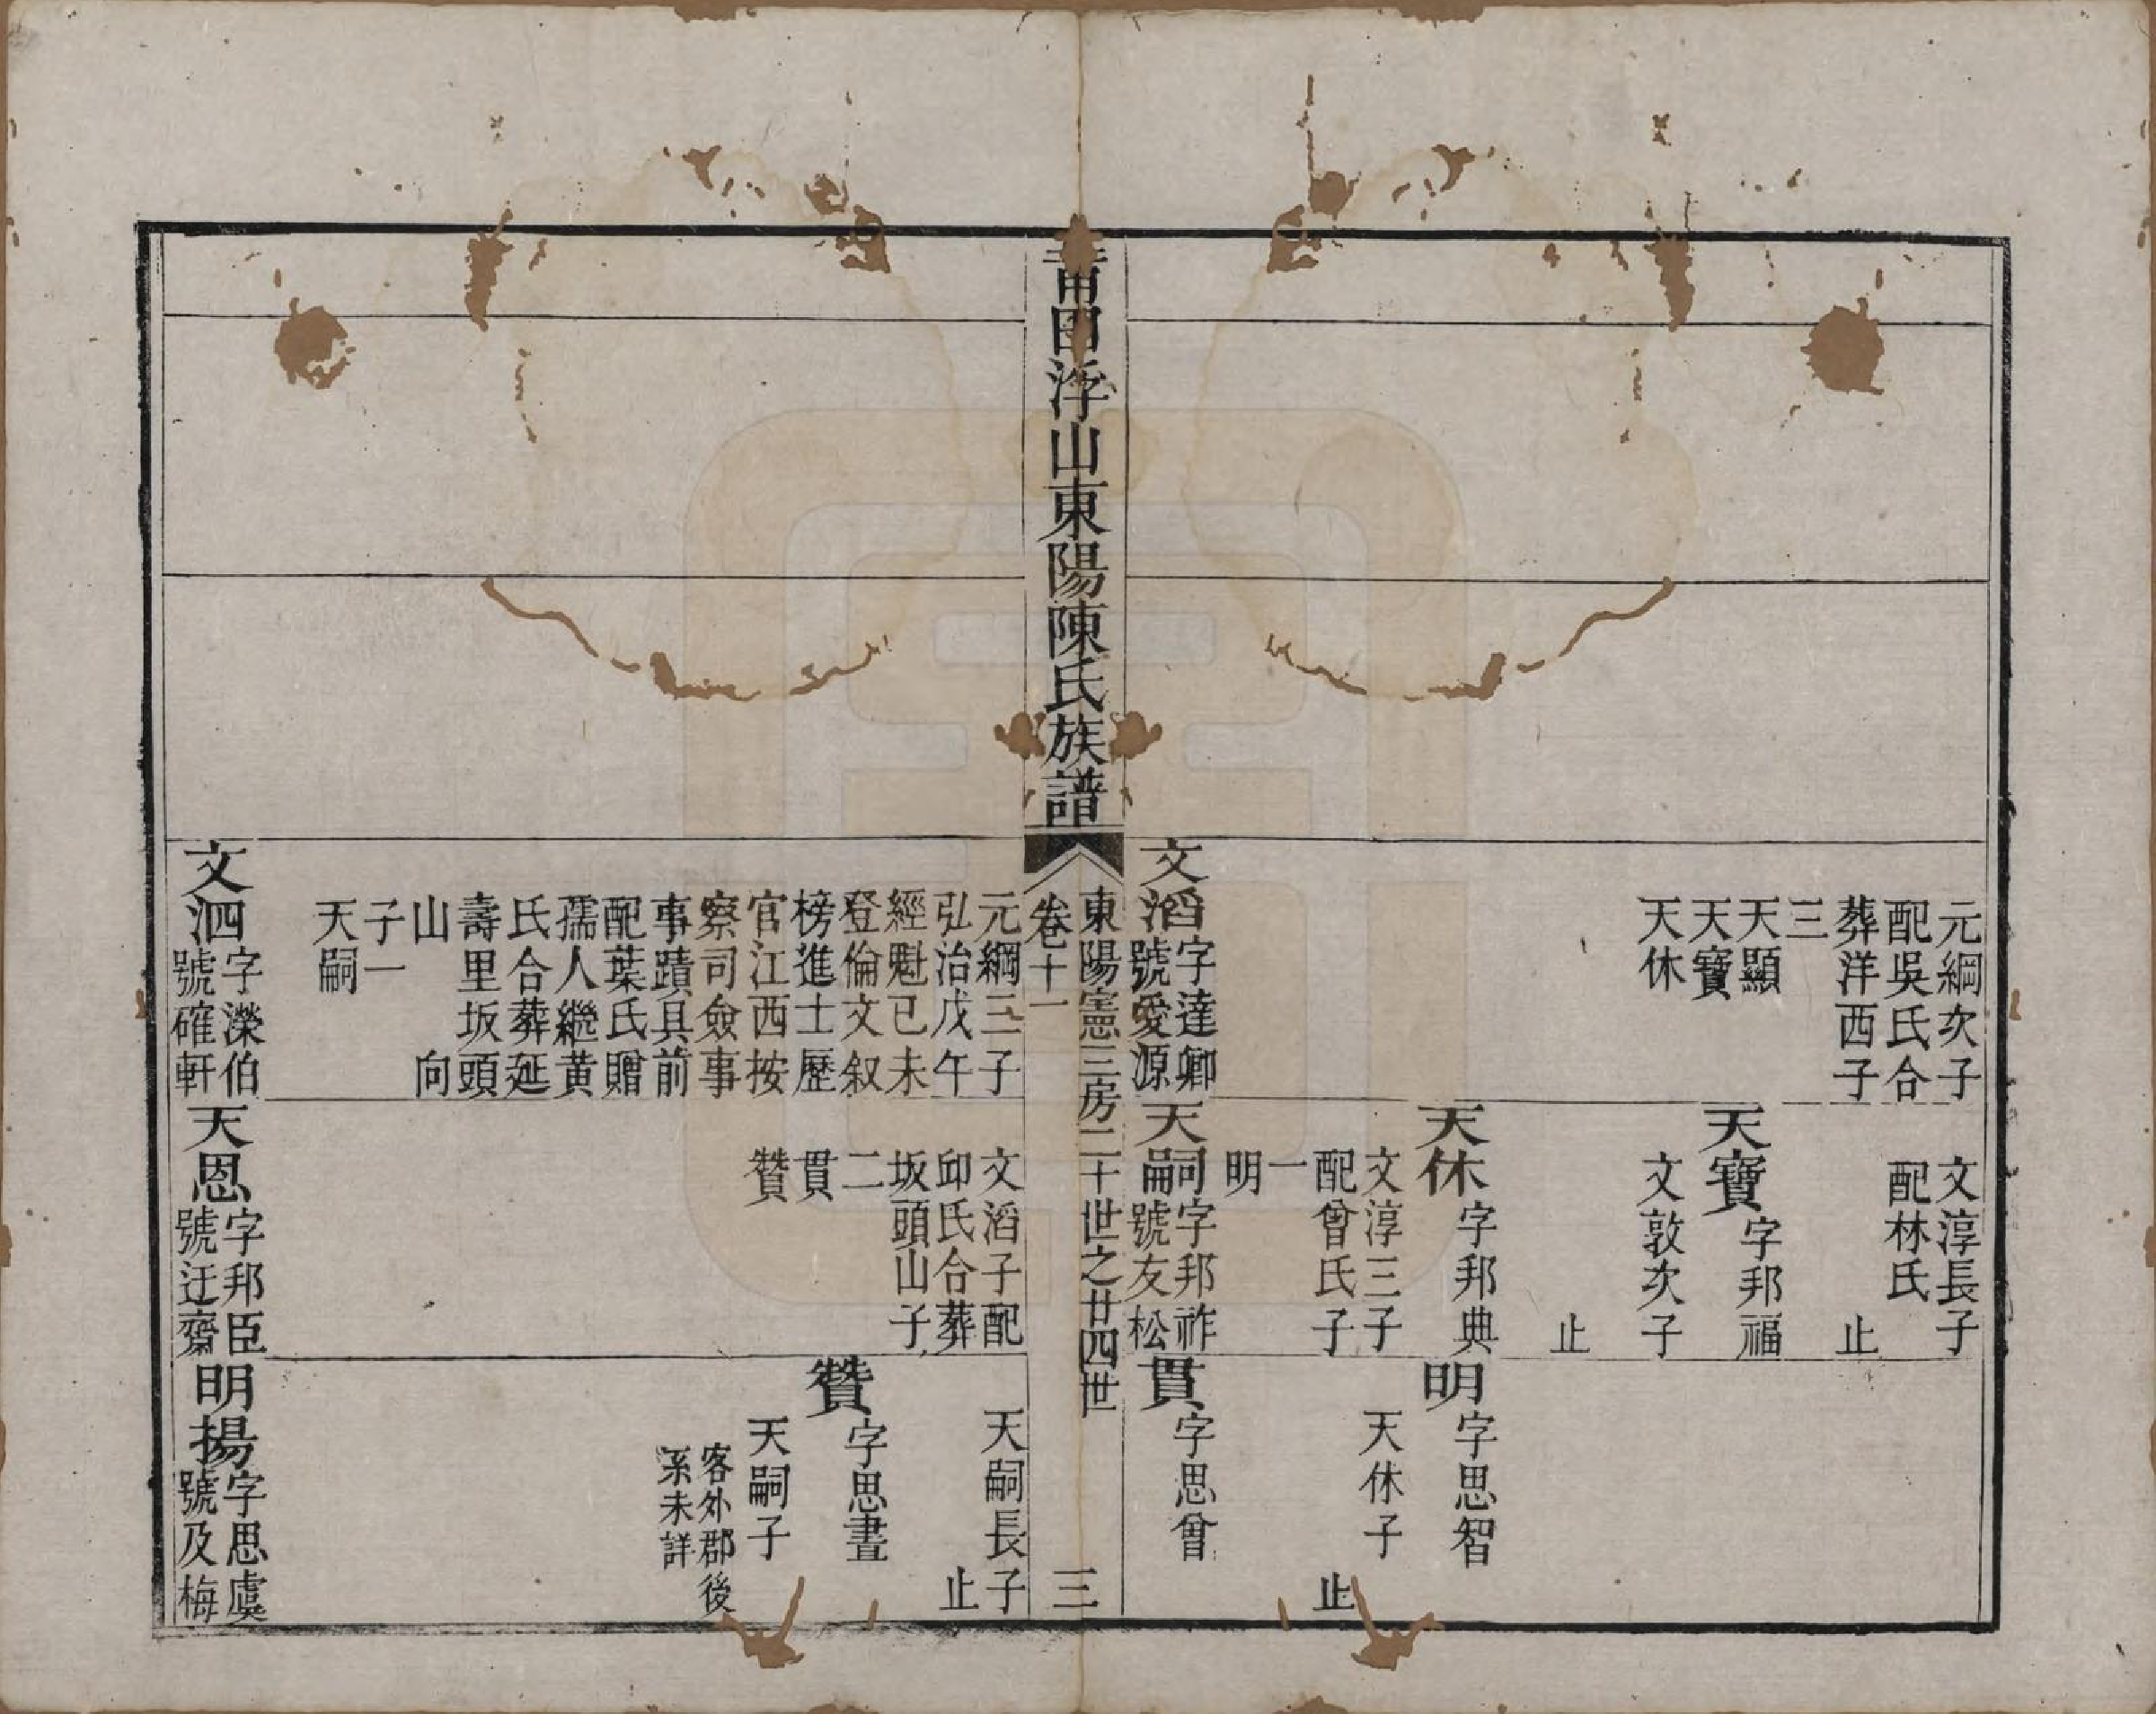 元綱次子
配吳氏合
葬洋西子
三
天顯
天寶
天休
文淳長子
配林氏
止
天寶字邦福
文敦次子
止
天休字邦典
文淳三子
配曾氏子
一
明
明字思智
天休子
止
文滔字達卿
號愛源
天嗣字邦祚
號友松
貫字思曾
莆田浮山東陽陳氏族譜
卷十一
東陽憲三房二十世之廿四世
三
元綱三子
弘治戊午
經魁已未
登倫文叙
榜進士歷
官江西按
察司僉事
事蹟具前
配葉氏贈
孺人繼黃
氏合葬延
壽里坂頭
山 向
子一
天嗣
文滔子配
邱氏合葬
坂頭山子
二
貫
贊
天嗣長子
止
贊字思晝
天嗣子
客外郡後
系未詳
文泗字濚伯
號確軒
天恩字邦臣
號迂齋
明揚字思虞
號及梅